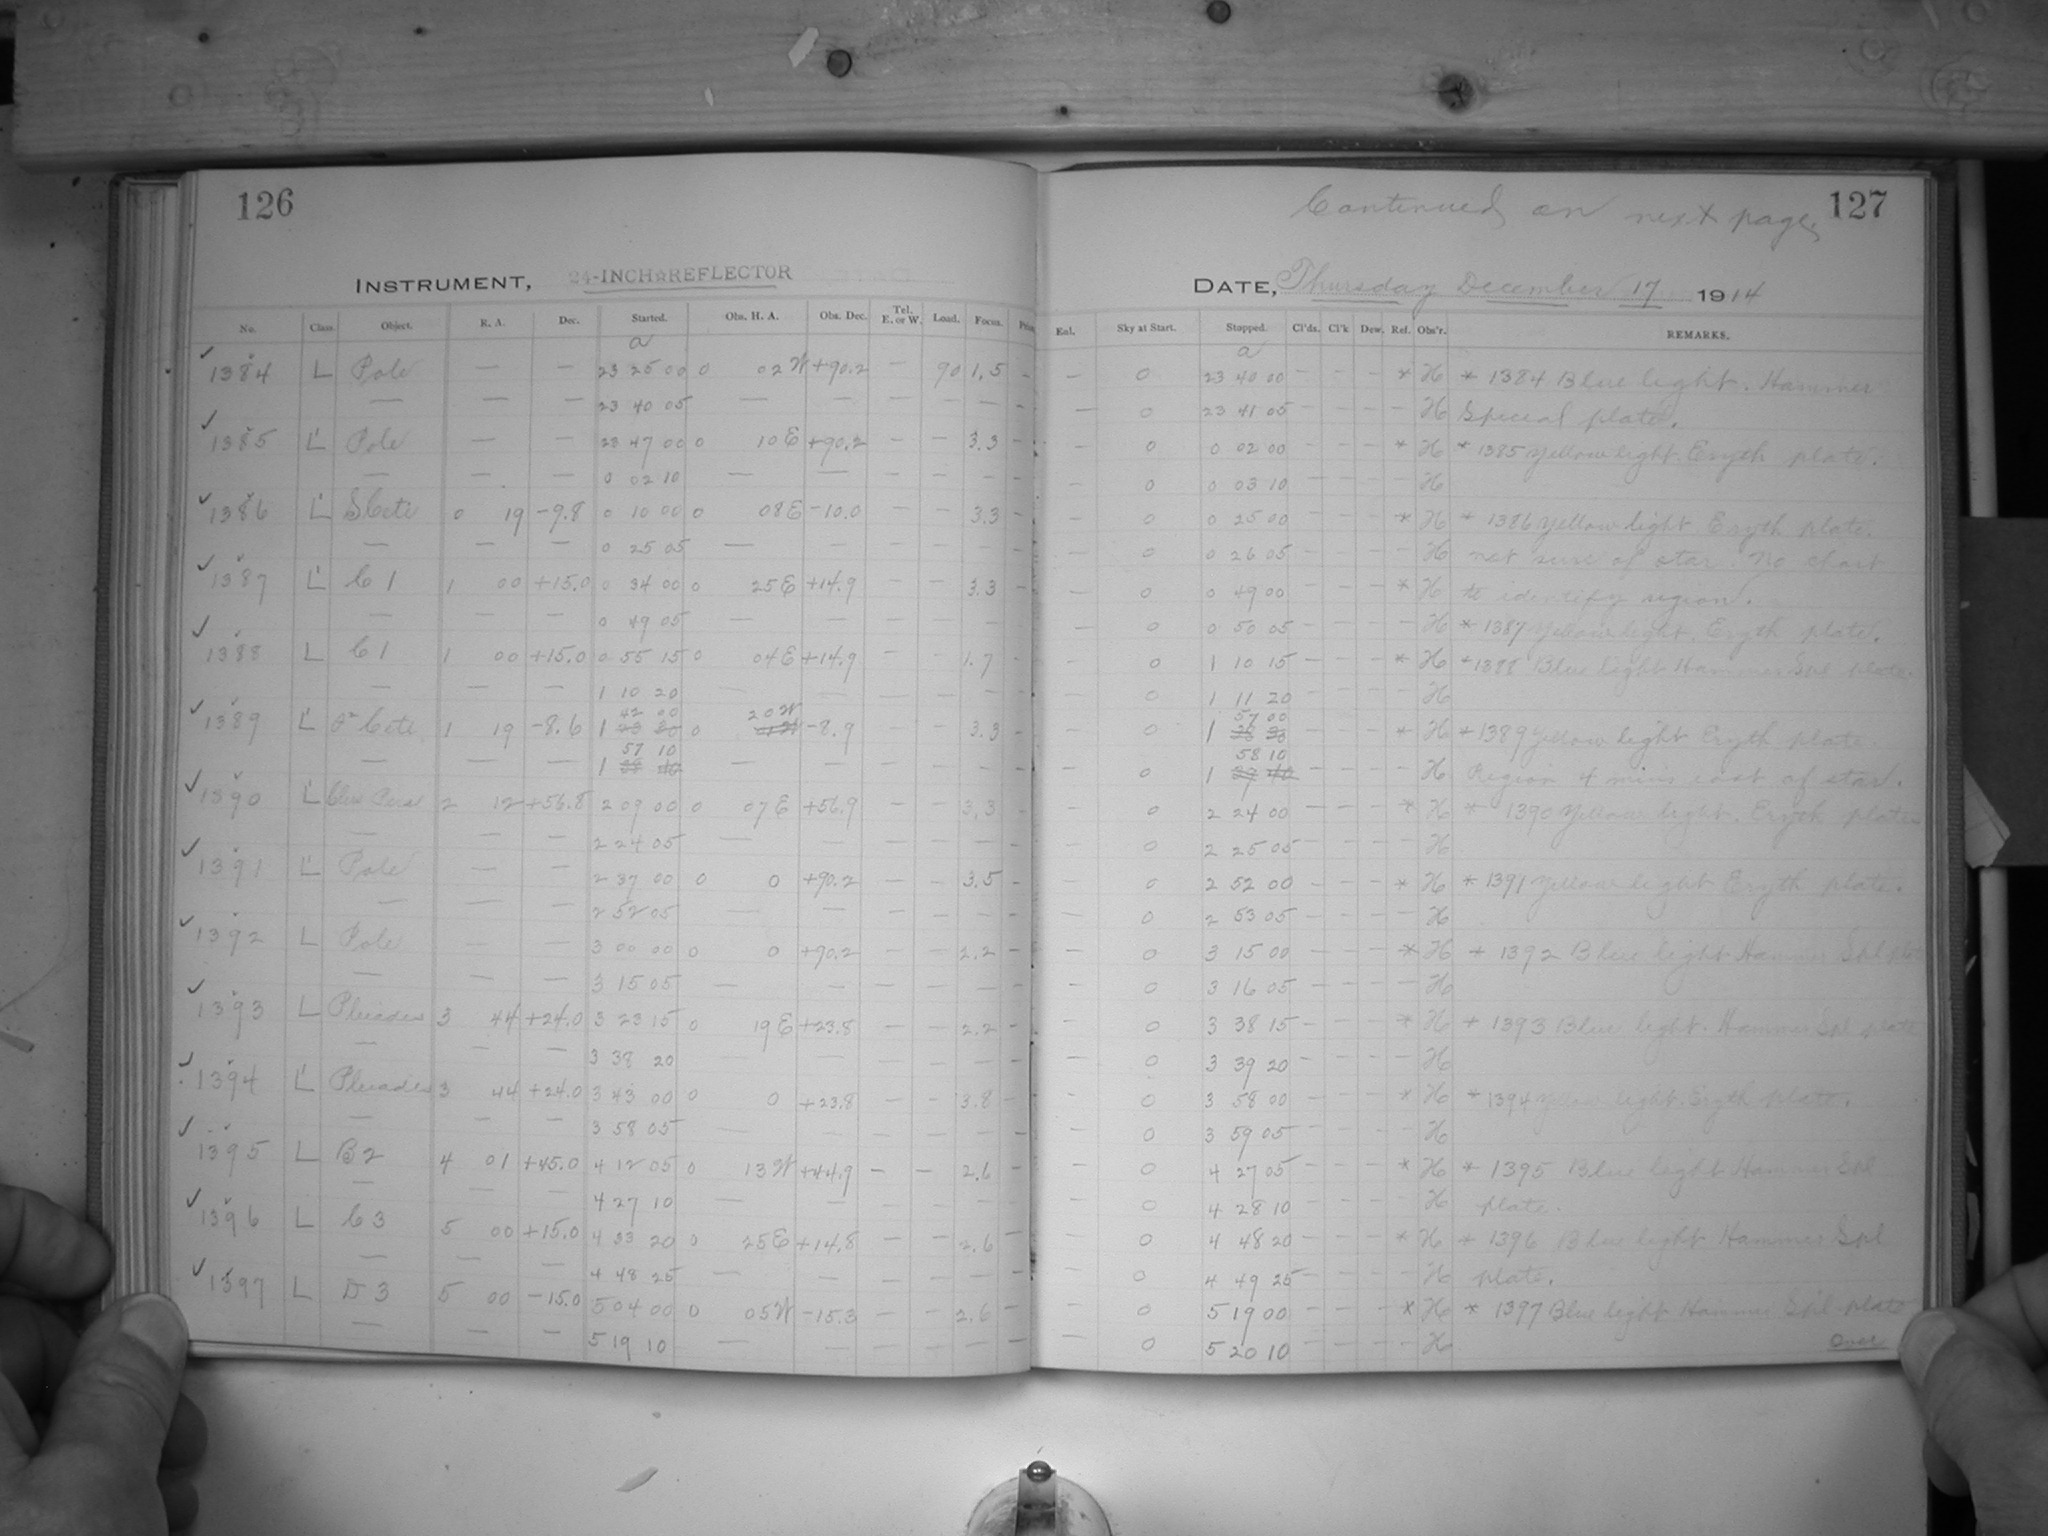 126
INSTRUMENT, 24-INCH☆REFLECTOR
No. Class. Object. R. A. Dec. Started. Obs. H. A. Obs. Dec. Tel. E. or W. Load. Focus.
a
1384 L Pole — — 23 25 00 0 02 W +90.2 — 90 1.5 -
— — — 23 40 05 — — — — — -
1385 L' Pole — — 23 47 00 0 10 E +90.2 — — 3.3 -
— — — 0 02 10 — — — — — -
1386 L' S Ceti 0 19 -9.8 0 10 00 0 08 E -10.0 — — 3.3 -
— — — 0 25 05 — — — — — -
1387 L' C 1 1 00 +15.0 0 34 00 0 25 E +14.9 — — 3.3 -
— — — 0 49 05 — — — — — -
1388 L C 1 1 00 +15.0 0 55 15 0 04 E +14.9 — — 1.7 -
— — — 1 10 20 — — — — — -
1389 L' Ceti 1 19 -8.6 1 42 00 0 20 W -8.9 — — 3.3 -
— — — 1 57 10 — — — — — -
1390 L' Clus Pers 2 12 +56.8 2 09 00 0 07 E +56.9 — — 3.3 -
— — — 2 24 05 — — — — — -
1391 L' Pole — — 2 37 00 0 0 +90.2 — — 3.5 -
— — — 2 52 05 — — — — — -
1392 L Pole — — 3 00 00 0 0 +90.2 — — 2.2 -
— — — 3 15 05 — — — — — -
1393 L Pleiades 3 44 +24.0 3 23 15 0 19 E +23.8 — — 2.2 -
— — — 3 38 20 — — — — — -
1394 L' Pleiades 3 44 +24.0 3 43 00 0 0 +23.8 — — 3.8 -
— — — 3 58 05 — — — — — -
1395 L B 2 4 01 +45.0 4 12 05 0 13 W +44.9 — — 2.6 -
— — — 4 27 10 — — — — — -
1396 L C 3 5 00 +15.0 4 33 20 0 25 E +14.8 — — 2.6 -
— — — 4 48 25 — — — — — -
1397 L D 3 5 00 -15.0 5 04 00 0 05 W -15.3 — — 2.6 -
— — — 5 19 10 — — — — — -
Continued on next page 127
DATE, Thursday December 17 1914
Enl. Sky at Start. Stopped. Cl'ds. Cl'k Dew. Ref. Obs'r. REMARKS.
a
— 0 23 40 00 - - - * H * 1384 Blue light. Hammer
— 0 23 41 05 - - - - H Special plate.
— 0 0 02 00 - - - * H * 1385 Yellow light. Eryth plate.
— 0 0 03 10 - - - - H
— 0 0 25 00 - - - * H * 1386 Yellow light Eryth plate.
— 0 0 26 05 - - - - H not sure of star. No chart
— 0 0 49 00 - - - * H to identify region.
— 0 0 50 05 - - - - H * 1387 Yellow light. Eryth plate.
— 0 1 10 15 - - - * H * 1388 Blue light Hammer Spl plate.
— 0 1 11 20 - - - - H
— 0 1 57 00 - - - * H * 1389 Yellow light Eryth plate.
— 0 1 58 10 - - - - H Region 4 mins east of star.
— 0 2 24 00 - - - * H * 1390 Yellow light. Eryth plate
— 0 2 25 05 - - - - H
— 0 2 52 00 - - - * H * 1391 Yellow light Eryth plate.
— 0 2 53 05 - - - - H
— 0 3 15 00 - - - * H * 1392 Blue light Hammer Spl plate
— 0 3 16 05 - - - - H
— 0 3 38 15 - - - * H * 1393 Blue light. Hammer Spl plate
— 0 3 39 20 - - - - H
— 0 3 58 00 - - - * H * 1394 Yellow light. Eryth plate.
— 0 3 59 05 - - - - H
— 0 4 27 05 - - - * H * 1395 Blue light Hammer Spl
— 0 4 28 10 - - - - H plate.
— 0 4 48 20 - - - * H * 1396 Blue light Hammer Spl
— 0 4 49 25 - - - - H plate.
— 0 5 19 00 - - - * H * 1397 Blue light Hammer Spl plate
— 0 5 20 10 - - - - H Over